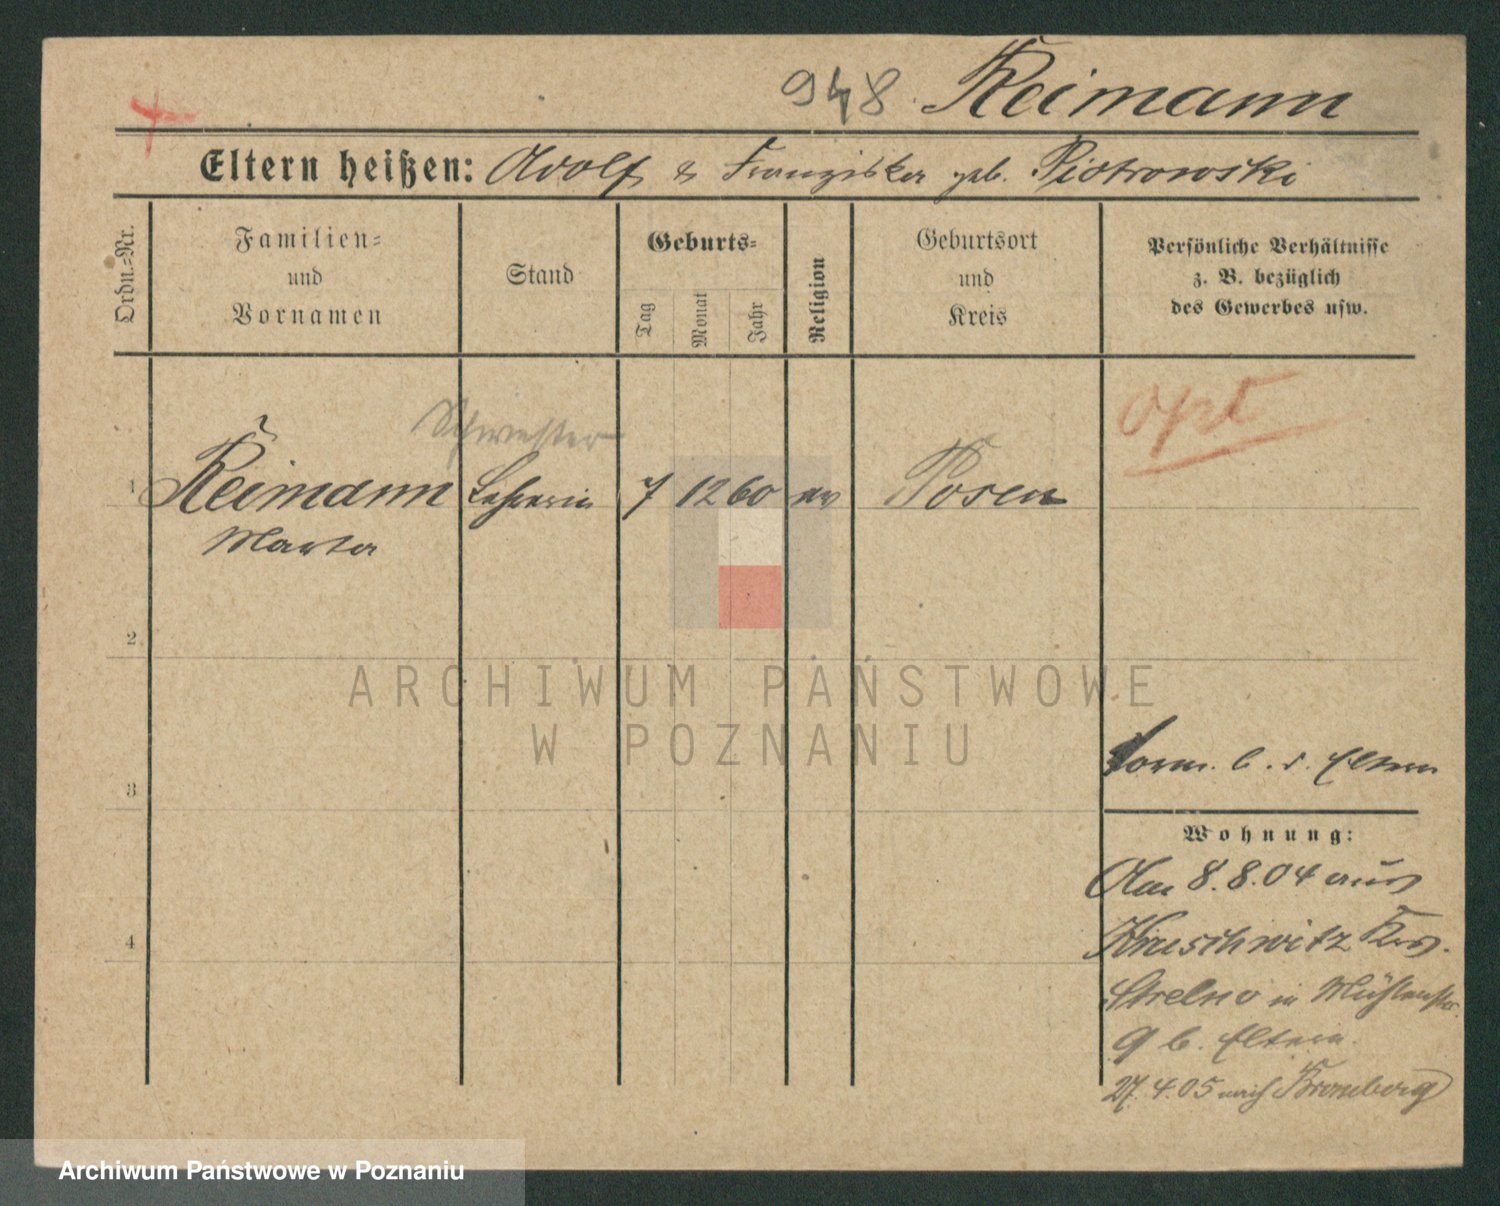 948 Reimann
Eltern heißen: Adolf & Franziska geb. Piotrowski
Ordn.-Nr.
Familien-
und
Vornamen
Stand
Geburts-
Tag
Monat
Jahr
Religion
Geburtsort
und
Kreis
Persönliche Verhältnisse
z. B. bezüglich
des Gewerbes usw.
opt
Schwester
1 Reimann Lehrerin 7 12 60 ev Posen
Marta
2
3
4
vorm. b. d. Eltern
Wohnung:
Am 8.8.04 aus
Kruschwitz Krs.
Strelno in Mühlenstr.
9 b. Eltern.
27.4.05 nach Bromberg
ARCHIWUM PAŃSTWOWE
W POZNANIU
Archiwum Państwowe w Poznaniu